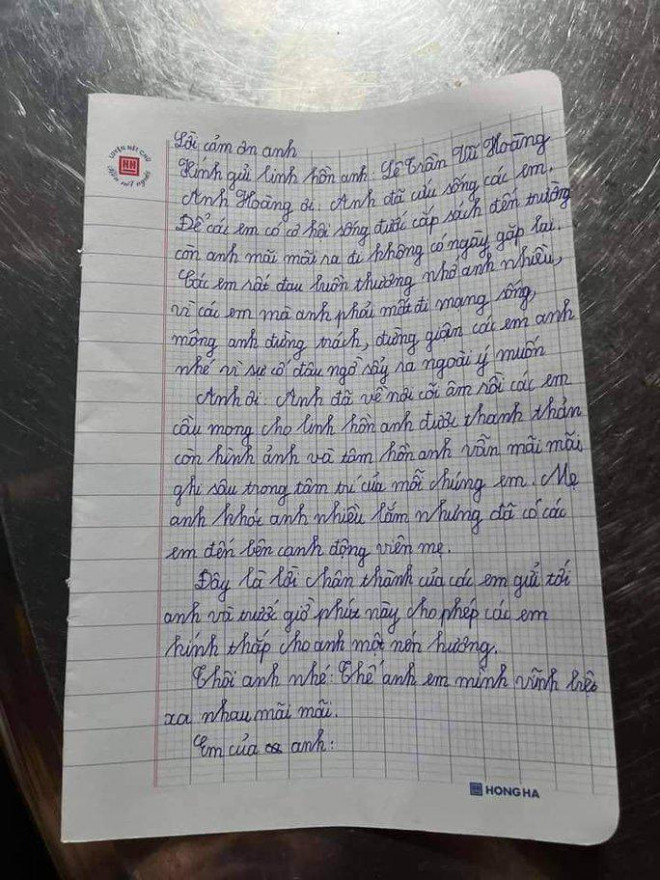 LUYỆN NÉT CHỮ
HH
Rèn nết người
Lời cảm ơn anh
Kính gửi linh hồn anh: Lê Trần Vũ Hoàng
Anh Hoàng ơi. Anh đã cứu sống các em.
Để các em có cơ hội sống được cắp sách đến trường
còn anh mãi mãi ra đi không có ngày gặp lại.
Các em rất đau buồn thương nhớ anh nhiều,
vì các em mà anh phải mất đi mạng sống,
mông anh đừng trách, đừng giận các em anh
nhé vì sự cố đâu ngờ sảy ra ngoài ý muốn
Anh ơi. Anh đã về nơi cõi âm rồi các em
cầu mong cho linh hồn anh được thanh thản
còn hình ảnh và tâm hồn anh vẫn mãi mãi
ghi sâu trong tâm trí của mỗi chúng em. Mẹ
anh khóc anh nhiều lắm nhưng đã có các
em đến bên cạnh động viên mẹ.
Đây là lời chân thành của các em gửi tới
anh và trước giờ phút này cho phép các em
kính thắp cho anh một nén hương.
Thôi anh nhé: Thế anh em mình vĩnh biệt
xa nhau mãi mãi.
Em của anh:
HONG HA